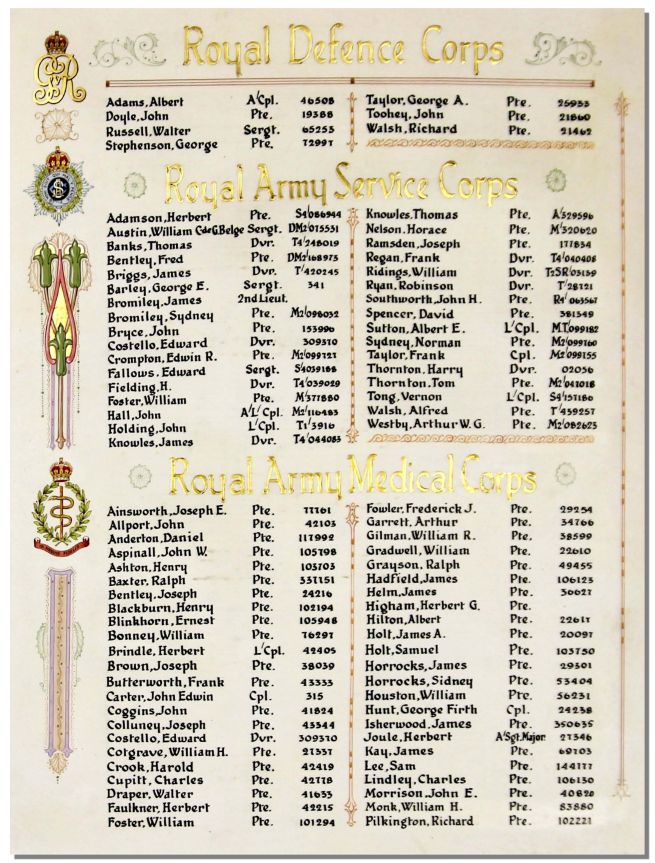 Royal Defence Corps
Adams, Albert A/Cpl. 46508
Doyle, John Pte. 19388
Russell, Walter Sergt. 65253
Stephenson, George Pte. 72997
Taylor, George A. Pte. 25933
Toohey, John Pte. 21860
Walsh, Richard Pte. 21462
Royal Army Service Corps
Adamson, Herbert Pte. S4/086944
Austin, William C de G. Belge Sergt. DM2/015531
Banks, Thomas Dvr. T4/248019
Bentley, Fred Pte. DM2/168973
Briggs, James Dvr. T/420245
Barley, George E. Sergt. 341
Bromiley, James 2nd Lieut.
Bromiley, Sydney Pte. M2/096032
Bryce, John Pte. 153996
Costello, Edward Dvr. 309370
Crompton, Edwin R. Pte. M2/099727
Fallows. Edward Sergt. S/4039188
Fielding, H. Dvr. T4/039029
Foster, William Pte. M/377880
Hall, John A/L/Cpl. M2/116483
Holding, John L/Cpl. T1/3916
Knowles, James Dvr. T4/044083
Knowles, Thomas Pte. A/329596
Nelson, Horace Pte. M/320620
Ramsden, Joseph Pte. 177834
Regan, Frank Dvr. T4/040408
Ridings, William Dvr. T2SR/03159
Ryan, Robinson Dvr. T/28721
Southworth, John H. Pte. R4/063567
Spencer, David Pte. 381349
Sutton, Albert E. L/Cpl. M.T./099182
Sydney, Norman Pte. M2/099160
Taylor, Frank Cpl. M2/099155
Thornton, Harry Dvr. 02036
Thornton, Tom Pte. M2/047018
Tong, Vernon L/Cpl. S4/157186
Walsh, Alfred Pte. T/439257
Westby, Arthur W. G. Pte. M2/082625
Royal Army Medical Corps
Ainsworth, Joseph E. Pte. 77761
Allport, John Pte. 42103
Anderton, Daniel Pte. 117992
Aspinall, John W. Pte. 105798
Ashton, Henry Pte. 103703
Baxter, Ralph Pte. 337151
Bentley, Joseph Pte. 24216
Blackburn, Henry Pte. 102194
Blinkhorn, Ernest Pte. 105948
Bonney, William Pte. 76297
Brindle, Herbert L/Cpl. 42405
Brown, Joseph Pte. 38039
Butterworth, Frank Pte. 43333
Carter, John Edwin Cpl. 315
Coggins, John Pte. 41824
Colluney, Joseph Pte. 43344
Costello, Edward Dvr. 309370
Cotgrave, William H. Pte. 27337
Crook, Harold Pte. 42419
Cupitt, Charles Pte. 42778
Draper, Walter Pte. 41633
Faulkner, Herbert Pte. 42215
Foster, William Pte. 101294
Fowler, Frederick J. Pte. 29254
Garrett, Arthur Pte. 34766
Gilman, William R. Pte. 38599
Gradwell, William Pte. 22610
Grayson, Ralph Pte. 49455
Hadfield, James Pte. 106123
Helm, James Pte. 36627
Higham, Herbert G. Pte.
Hilton, Albert Pte. 22617
Holt, James A. Pte. 20097
Holt, Samuel Pte. 103750
Horrocks, James Pte. 29301
Horrocks, Sidney Pte. 53404
Houston, William Pte. 56231
Hunt, George Firth Cpl. 24238
Isherwood, James Pte. 350635
Joule, Herbert A/Sgt. Major 27346
Kay, James Pte. 69703
Lee, Sam Pte. 144177
Lindley, Charles Pte. 106130
Morrison, John E. Pte. 40820
Monk, William H. Pte. 83880
Pilkington, Richard Pte. 102221